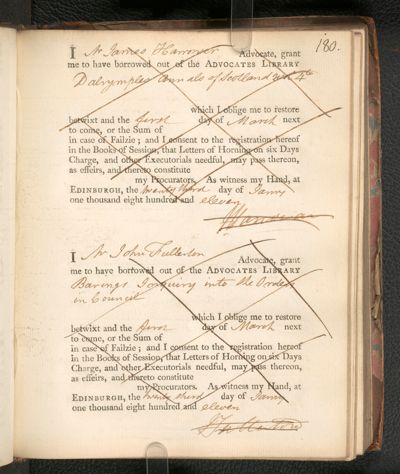 180.
I Mr James Advocate, grant
me to have borrowed out of the ADVOCATES LIBRARY
Dalrymples Annals of Scotland 4to
which I oblige me to restore
betwixt and the first day of March next
to come, or the Sum of
in case of Failzie; and I consent to the registration hereof
in the Books of Session, that Letters of Horning on six Days
Charge, and other Executorials needful, may pass thereon,
as effeirs, and thereto constitute
my Procurators. As witness my Hand, at
EDINBURGH, the twenty third day of Janry
one thousand eight hundred and eleven
I Mr John Fullerton Advocate, grant
me to have borrowed out of the ADVOCATES LIBRARY
Barings Inquiry into the Orders
in Council
which I oblige me to restore
betwixt and the first day of March next
to come, or the Sum of
in case of Failzie; and I consent to the registration hereof
in the Books of Session, that Letters of Horning on six Days
Charge, and other Executorials needful, may pass thereon,
as effeirs, and thereto constitute
my Procurators. As witness my Hand, at
EDINBURGH, the twenty third day of Janry
one thousand eight hundred and eleven